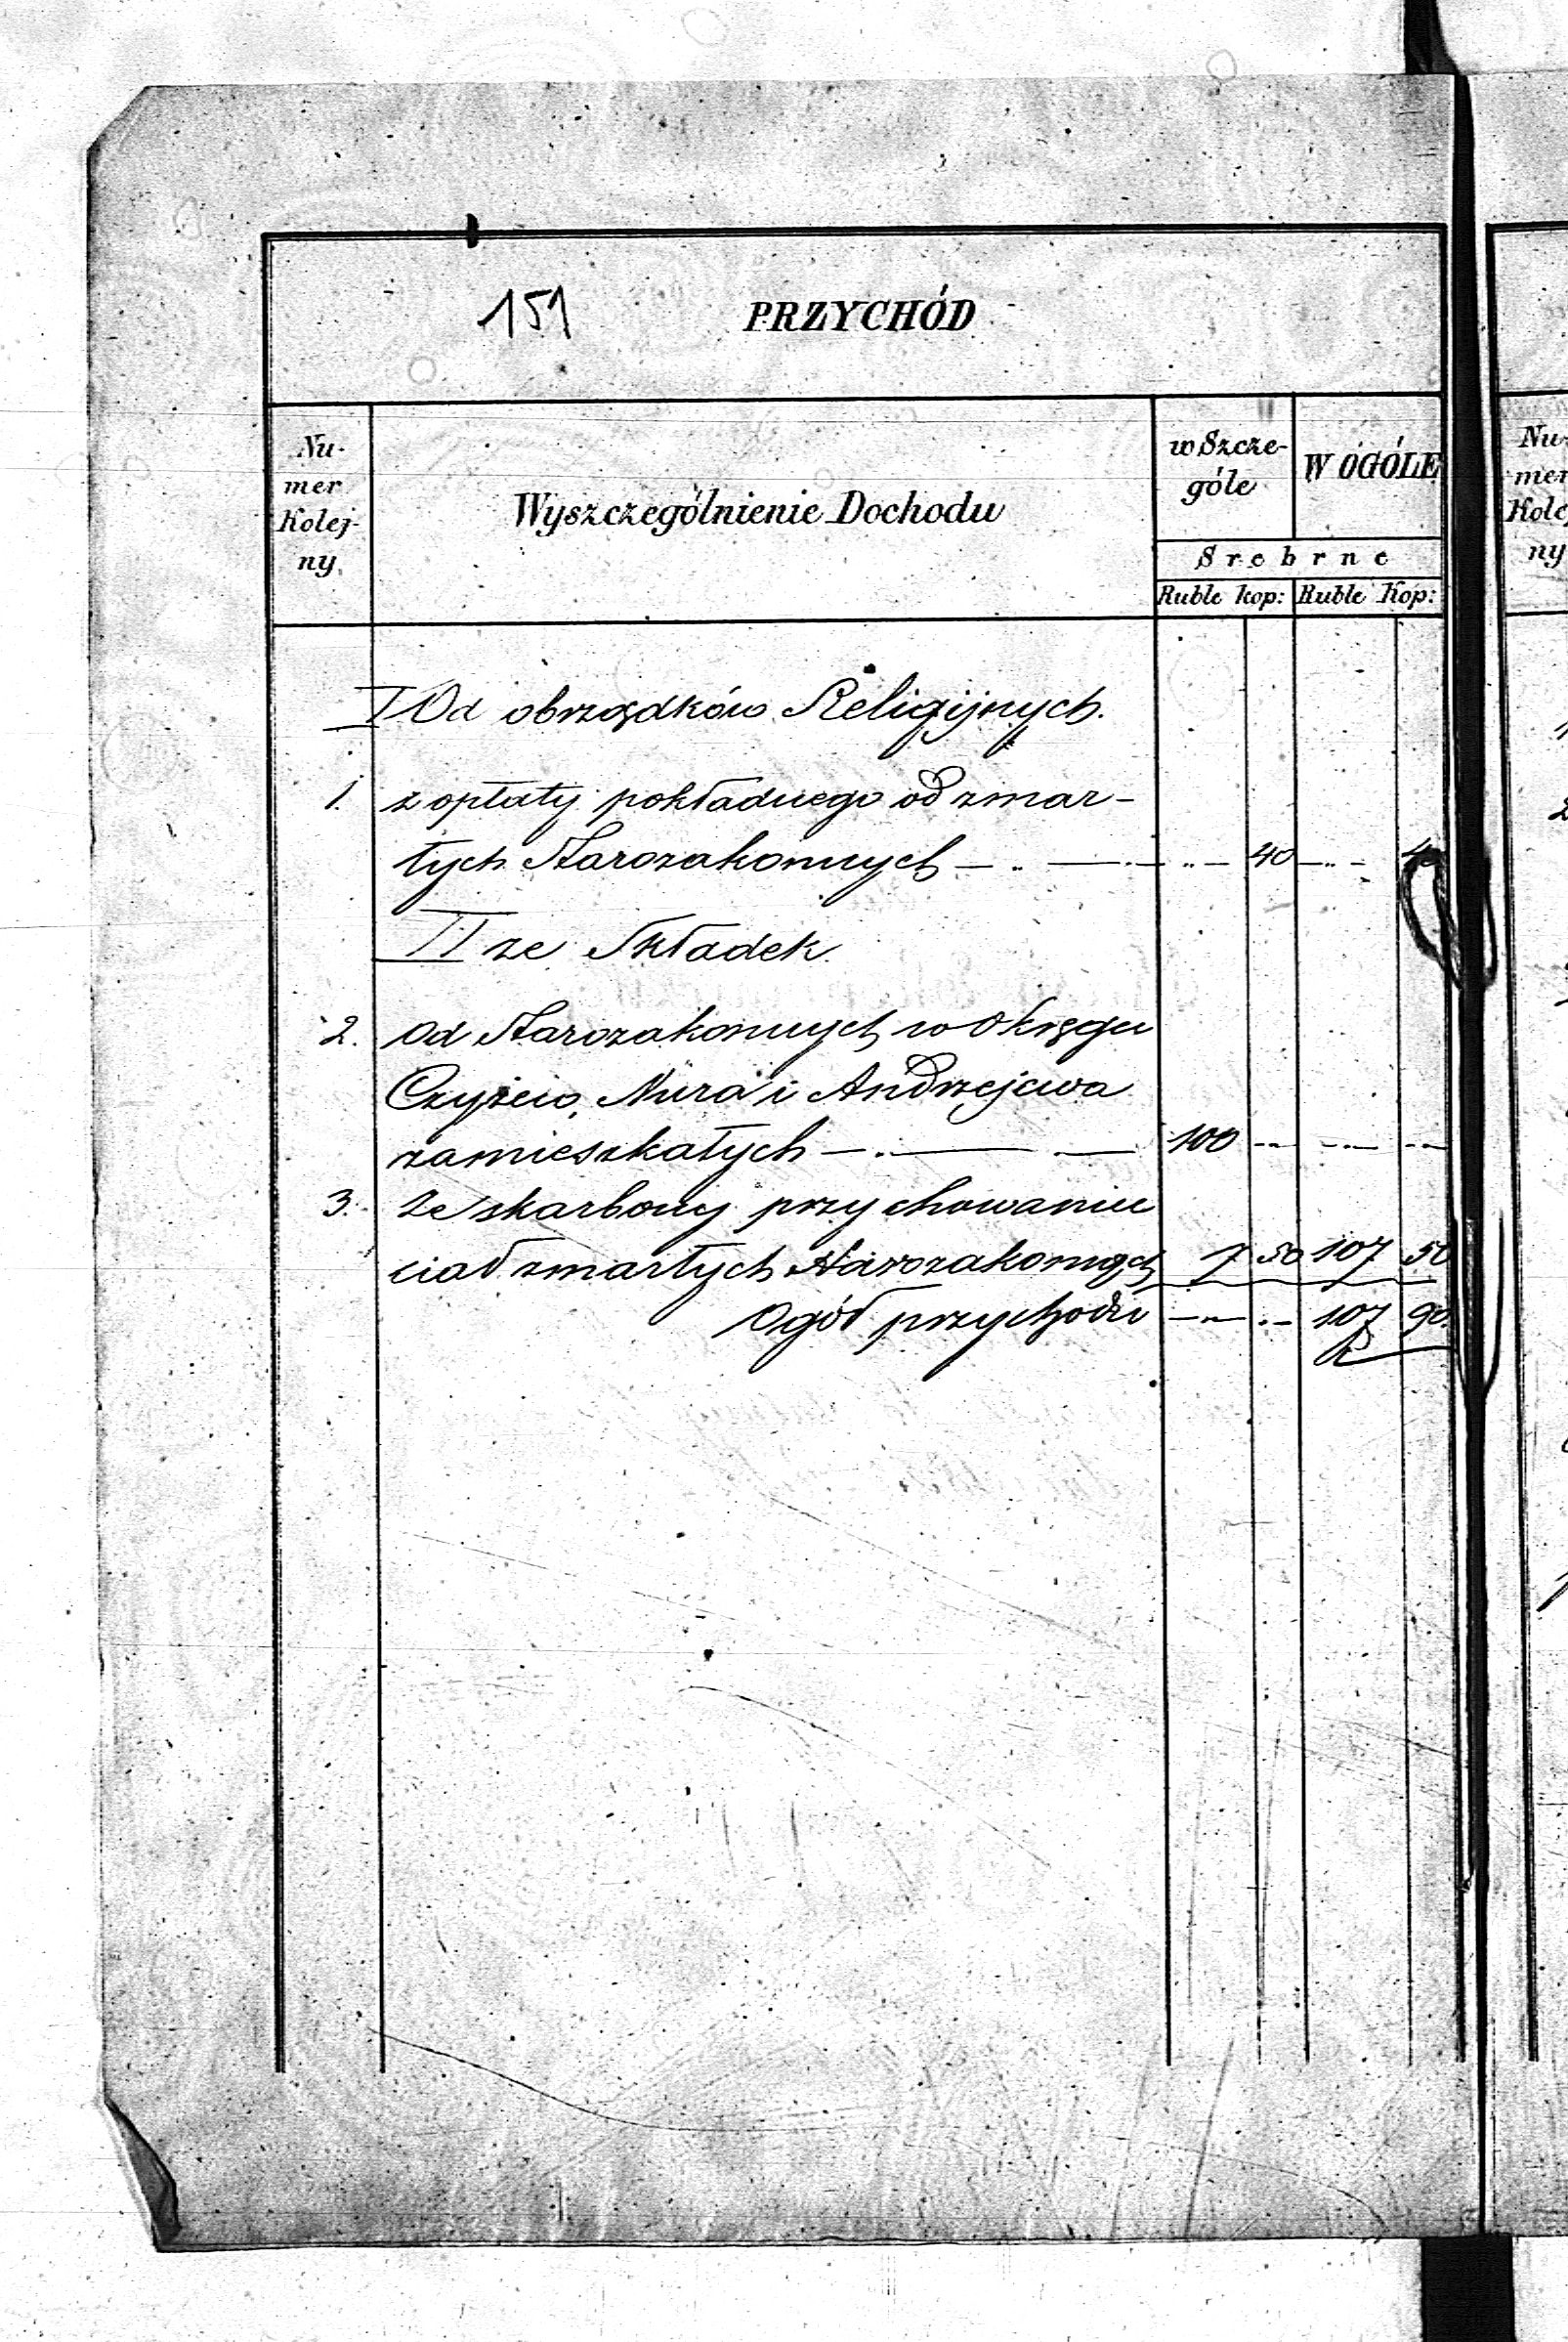 151 PRZYCHÓD
Nu-
mer
Kolej-
ny
Wyszczególnienie Dochodu
w Szcze-
góle
W OGÓLE
Srebrne
Ruble kop: Ruble Kop:
I Od obrządków Religijnych.
1. z opłaty pokładnego od zmar-
łych Starozakonnych — 40 40
II ze Składek
2. Od Starozakonnych w Okręgu
Czyżew, Nura i Andrzejewa
zamieszkałych — 100
3. Ze skarbony przy chowaniu
ciał zmarłych Starozakonnych 7 50 107 50
Ogół przychodu 107 90.
Nu-
mer
Kolej
ny